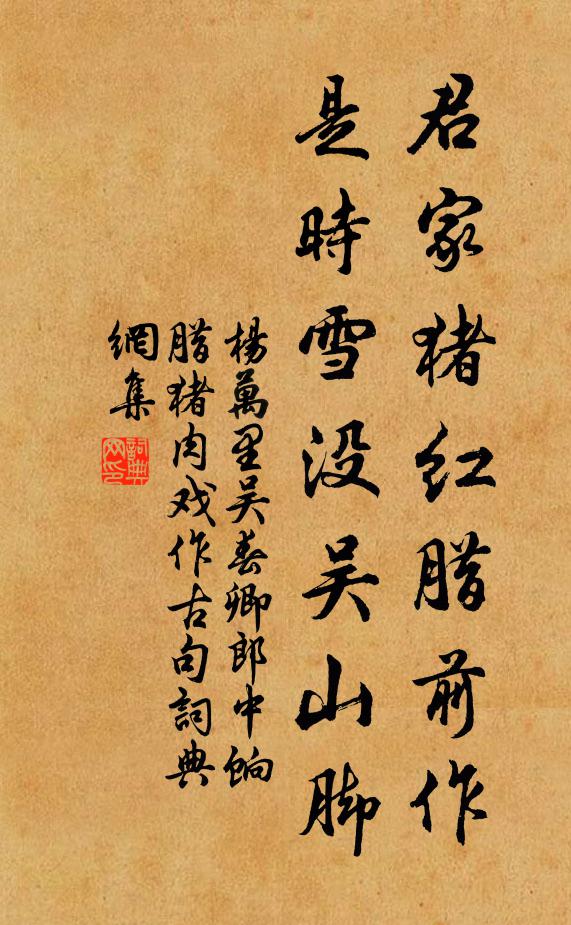 君家猪红腊前作
是時雪没吴山脚
楊萬里吴春卿郎中餉
腊猪肉戏作古句詞典
網集
詞典
网印